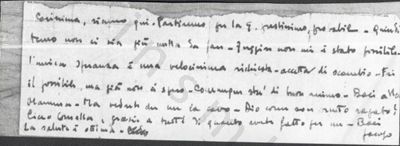 Carissima, siamo qui. Partiremo per la G. prestissimo, probabil. - Quindi
temo non ci sia più nulla da fare - Fuggire non mi è stato possibile.
l'unica speranza è una velocissima richiesta - accetta di scambio - Fai
il possibile, ma già non ci spero - Comunque sta' di buon animo - Baci alla
Mamma - Ma vederti un la cara - Dio come sono
Ciao Ornella, grazie a tutti di quanto avete fatto per me - Baci
La salute è ottima - Ciao